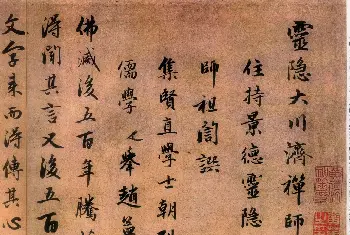 靈隱大川濟禪師
住持景德靈隱
師祖誾撰
集賢直學士朝列
儒學
舉趙
佛滅後五百年騰
得聞其言又後五百
文字來而得傳其心